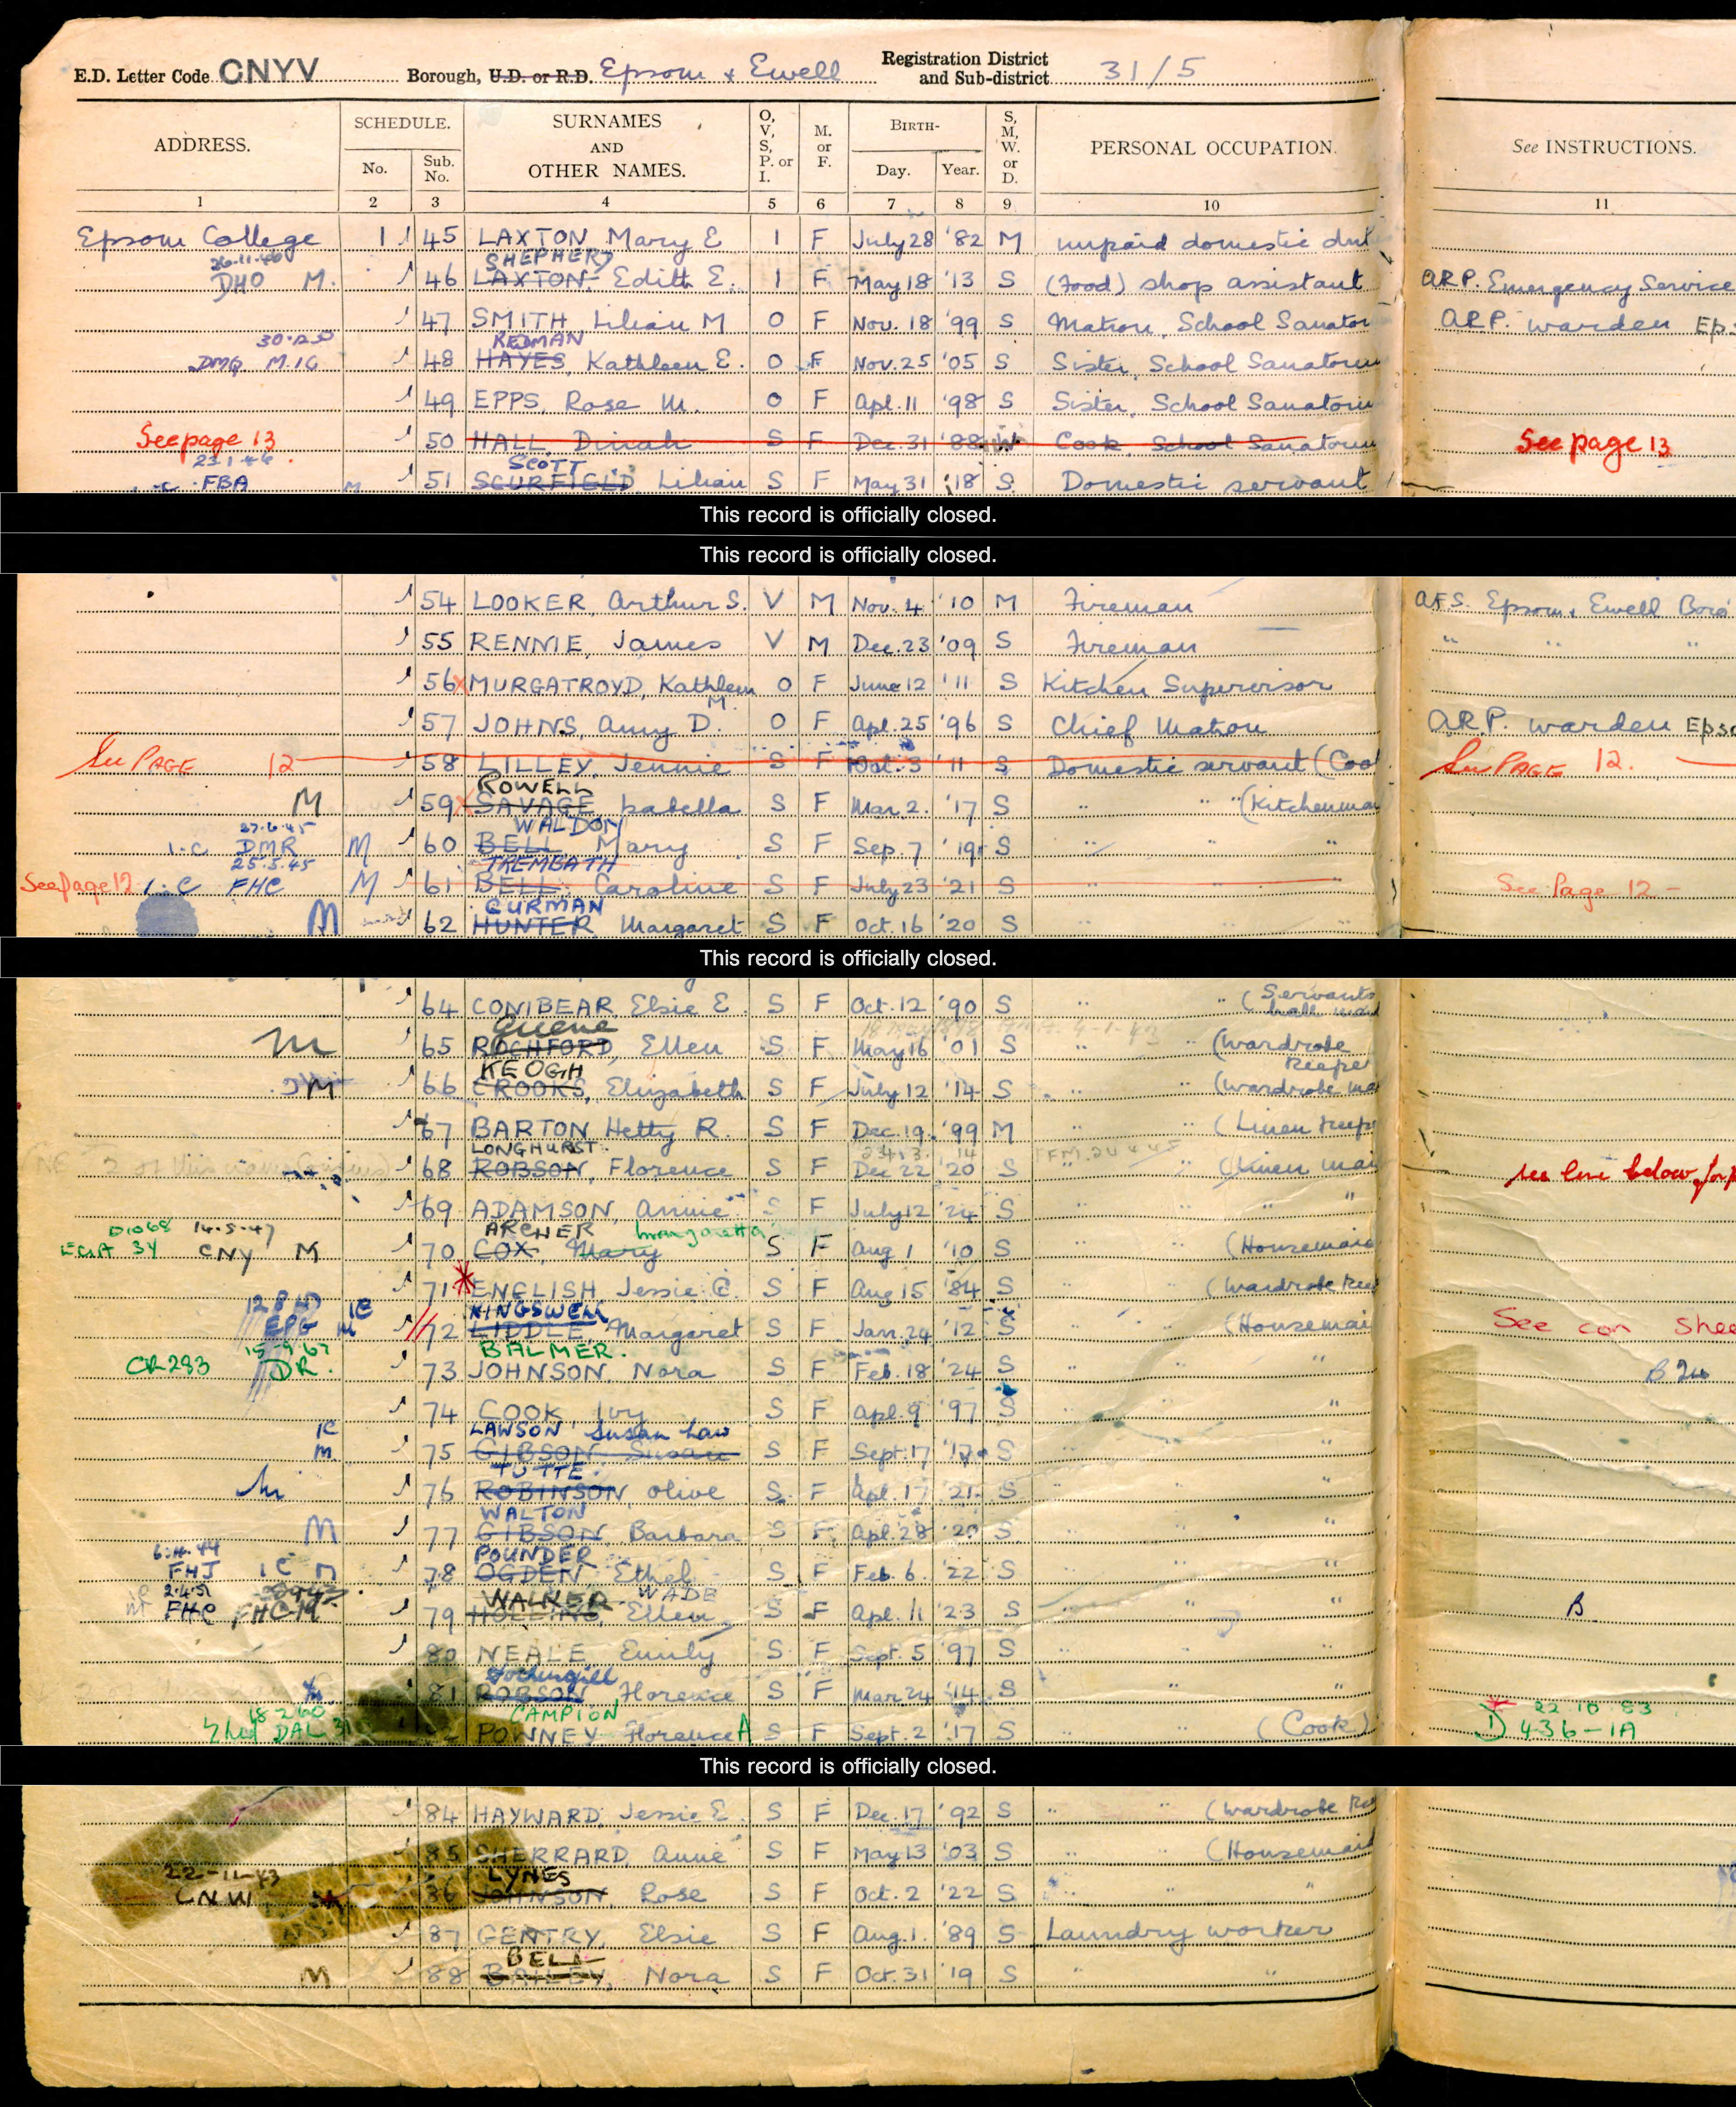 E.D. Letter Code CNYV Borough, U.D. or R.D. Epsom & Ewell Registration District and Sub-district 31/5
ADDRESS. SCHEDULE. No. Sub. No. SURNAMES AND OTHER NAMES. O, V, S, P. or I. M. or F. BIRTH- Day. Year. S, M, W. or D. PERSONAL OCCUPATION. See INSTRUCTIONS.
1 2 3 4 5 6 7 8 9 10 11
Epsom College 1 45 LAXTON Mary E I F July 28 '82 M unpaid domestic dut
26.11.46 SHEPHERD
DHO M. 46 LAXTON Edith E. I F May 18 '13 S (Food) shop assistant ARP. Emergency Service
47 SMITH, Lilian M O F Nov. 18 '99 S Matron, School Sanator ARP. warden Eps
REDMAN
DMQ M.IC 48 HAYES, Kathleen E. O F Nov. 25 '05 S Sister, School Sanatorium
49 EPPS, Rose M. O F Apl. 11 '98 S Sister, School Sanatoriu
See page 13 50 HALL, Dinah S F Dec 31 '88 Cook, School Sanatoriu See page 13
23.1.46 SCOTT
FBA M 51 SCURFIELD Lilian S F May 31 '18 S. Domestic servant
This record is officially closed.
This record is officially closed.
54 LOOKER, Arthur S. V M Nov. 4 '10 M Fireman AFS. Epsom & Ewell Boro
55 RENNIE, James V M Dec. 23 '09 S Fireman " " "
56 MURGATROYD, Kathleen M. O F June 12 '11 S Kitchen Supervisor
57 JOHNS, Amy D. O F Apl. 25 '96 S Chief Matron ARP. warden Epso
See PAGE 12 58 LILLEY, Jennie S F Oct. 3 '11 S Domestic servant (Coo See PAGE 12.
ROWELL
M 59 SAVAGE Isabella S F Mar 2. '17 S " " (Kitchenma
27.6.45 WALDON
1.C DMR M 60 BELL Mary S F Sep. 7 '19 S " " "
25.5.45 TREMBATH
See page 12 1.C FHC M 61 BELL Caroline S F July 23 '21 S " " " See Page 12 -
CURMAN
M 62 HUNTER Margaret S F Oct. 16 '20 S " " "
This record is officially closed.
64 CONIBEAR, Elsie E. S F Oct. 12 '90 S " " (Servants hall mai
Queene
M 65 ROCHFORD, Ellen S F May 16 '01 S " " (Wardrobe Keeper
KEOGH
M 66 CROOKS, Elizabeth S F July 12 '14 S " " (Wardrobe ma
67 BARTON Hetty R. S F Dec. 19. '99 M " " (Linen Keepe
LONGHURST.
68 ROBSON, Florence S F Dec 22 '20 S " " (Linen mai see line below for
69 ADAMSON, Annie S F July 12 '24 S " " "
D1068 14.5.47 ARCHER Margaretta
CNY M 70 COX, Mary S F Aug 1 '10 S " " (Housemaid
71 ENGLISH Jessie C. S F Aug 15 '84 S " " (Wardrobe Kee
KINGSWELL
EPG M IC 72 LIDDLE, Margaret S F Jan. 24 '12 S " " (Housemai See con shee
15-9-67 BALMER.
CR283 DR. 73 JOHNSON, Nora S F Feb. 18 '24 S " " " B 24
74 COOK Ivy S F Apl. 9 '97 S " " "
IC LAWSON Susan Law
M 75 GIBSON Susan S F Sept. 17 '17 S " " "
TUTTE.
76 ROBINSON, Olive S F Apl. 17 '21 S " " "
WALTON
M 77 GIBSON, Barbara S F Apl. 28 '20 S " " "
POUNDER
FHJ IC M 78 OGDEN Ethel S F Feb. 6. '22 S " " "
2.4.51 WALKER WADE
FHC FHC 79 Ellen S F Apl. 11 '23 S " " " B
80 NEALE, Emily S F Sept. 5 '97 S " " "
81 ROBSON Florence S F Mar 24 '14 S " " "
18 2 60 CAMPION 22 10 83
DAL 31 POWNEY Florence A S F Sept. 2 '17 S " " (Cook) D 436-1A
This record is officially closed.
84 HAYWARD, Jessie E. S F Dec. 17 '92 S " " (Wardrobe Kee
85 SHERRARD, Annie S F May 13 '03 S " " (Housemaid
22-11-43 LYNES
CNW 86 JOHNSON Rose S F Oct. 2 '22 S " " "
87 GENTRY, Elsie S F Aug. 1. '89 S Laundry worker
BELL
M 88 Nora S F Oct. 31 '19 S " "